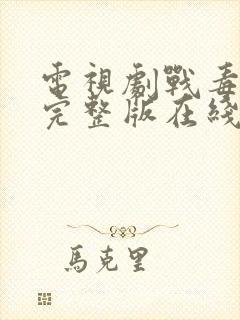 電視劇戰毒
完整版在綫
馬克里